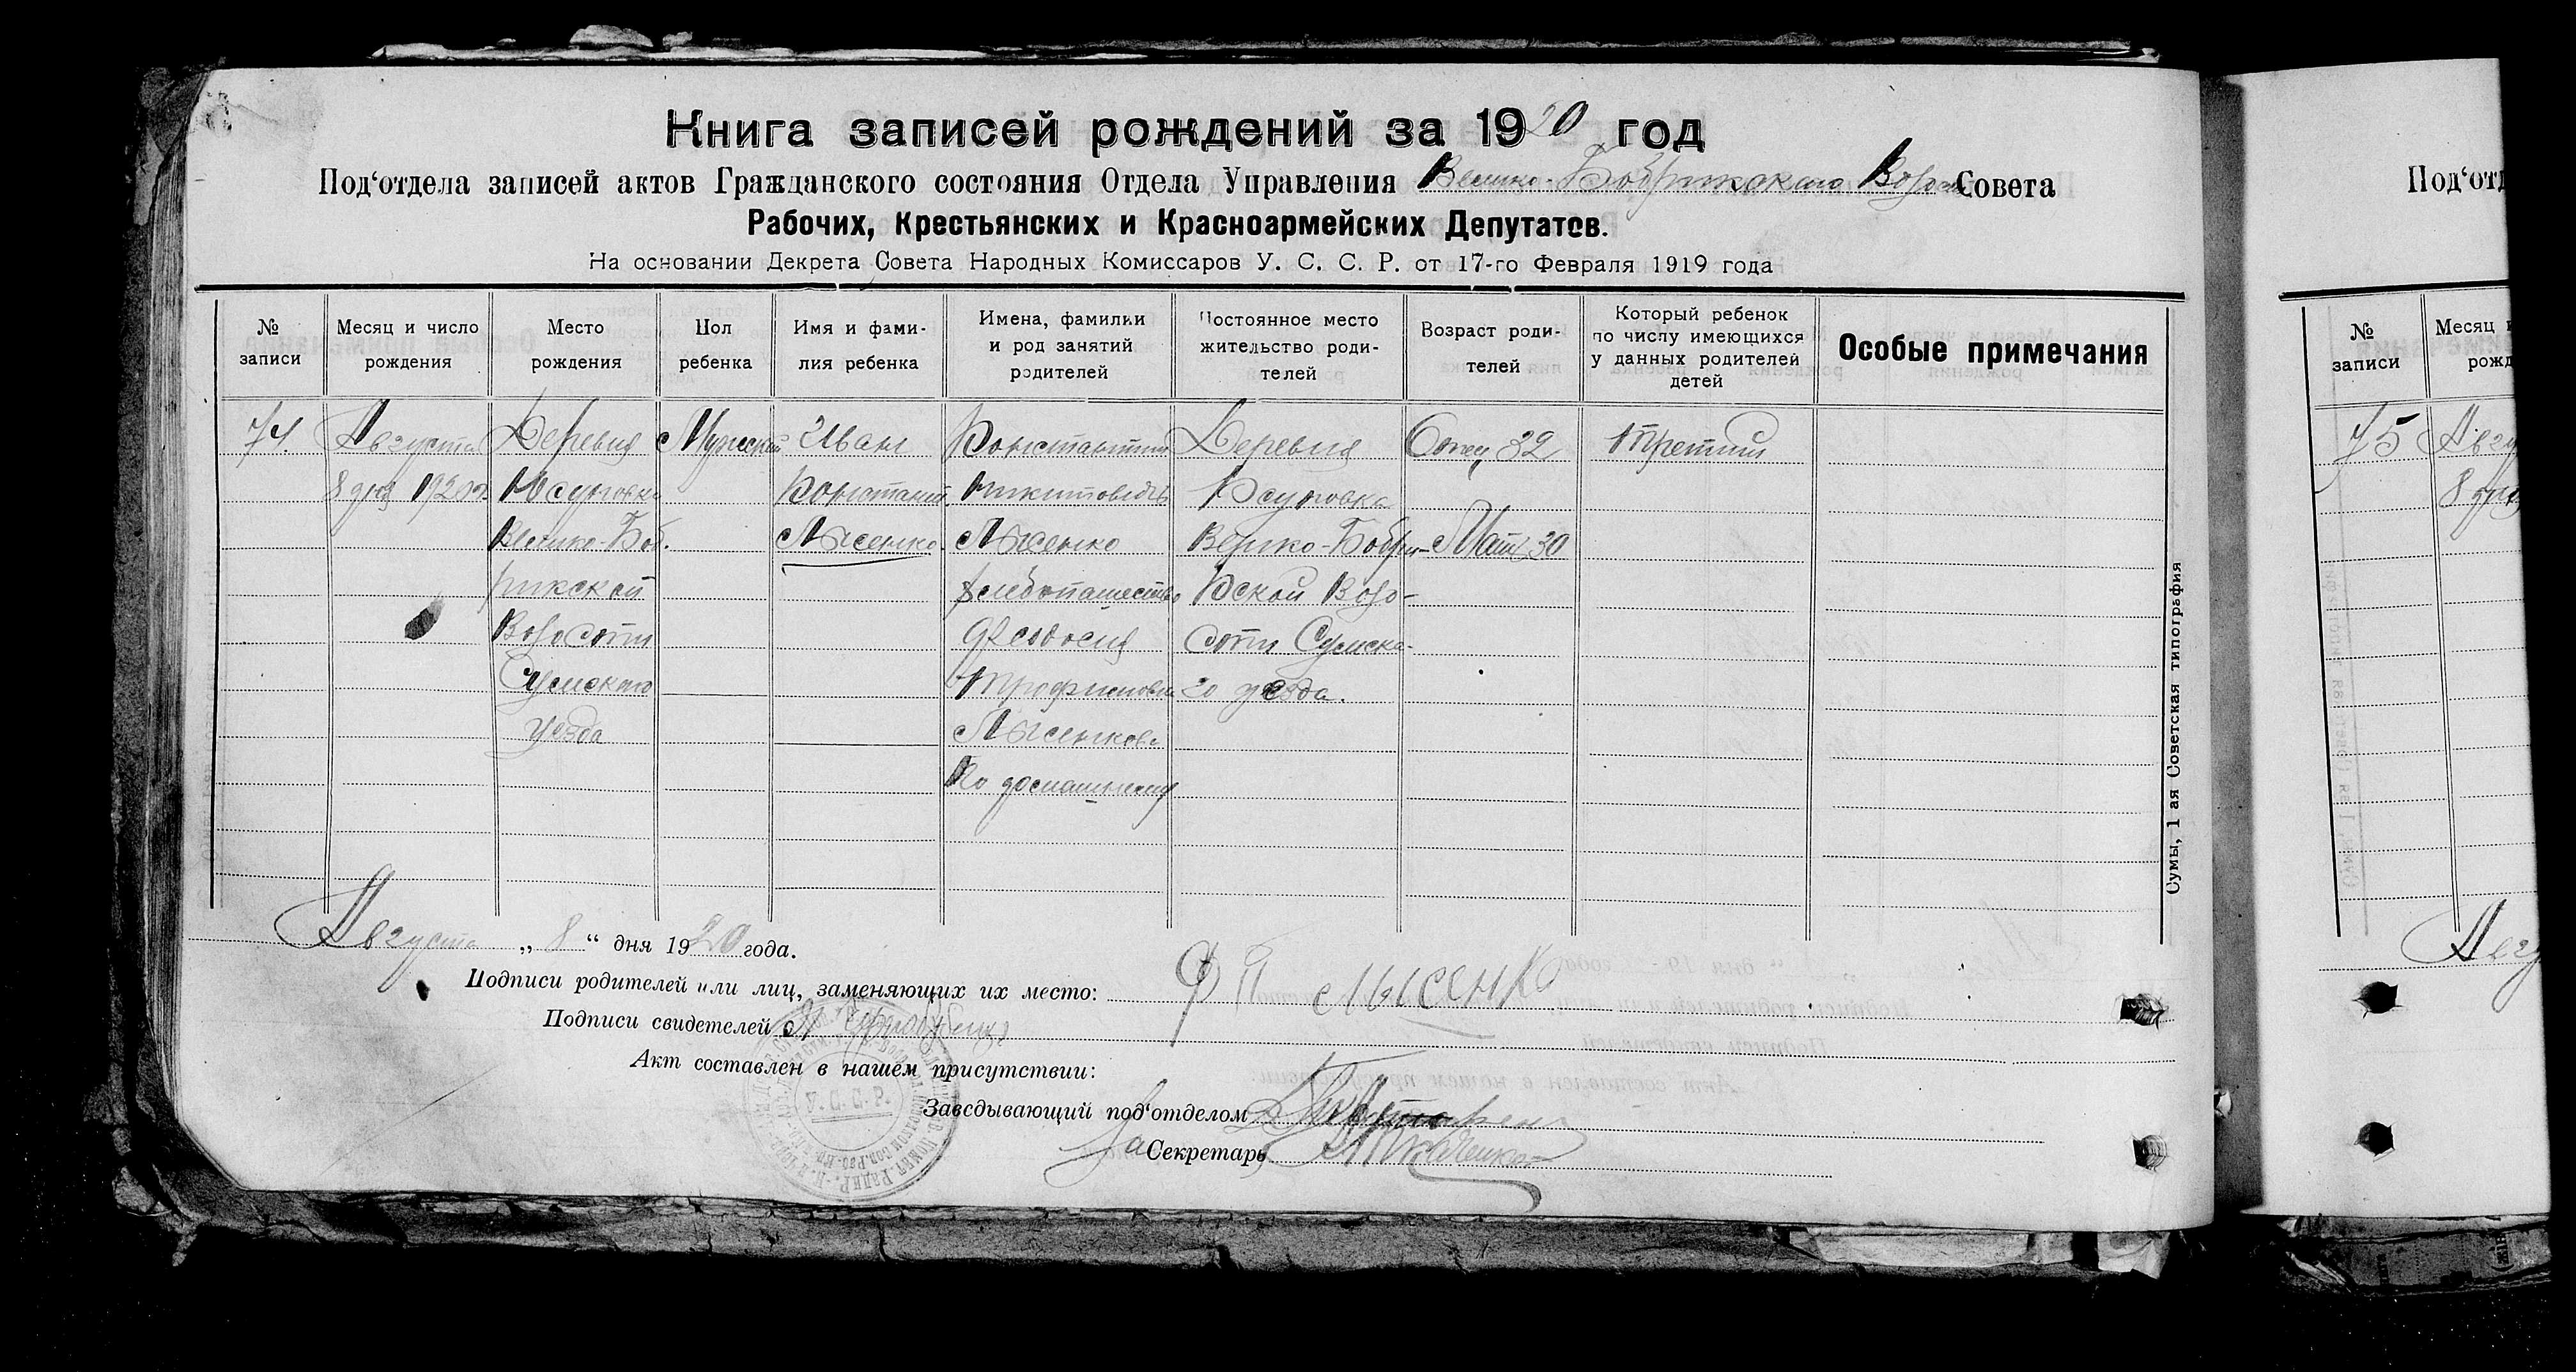 Книга записей рождений за 1920 год
Под‘отдела записей актов Гражданского состояния Отдела Управления Велико-Бобрикскаго Волос. Совета
Рабочих, Крестьянских и Красноармейских Депутатов.
На основании Декрета Совета Народных Комиссаров У. С. С. Р. от 17-го Февраля 1919 года
№ записи
Месяц и число рождения
Место рождения
Пол ребенка
Имя и фами-
лия ребенка
Имена, фамилии
и род занятий
родителей
Постоянное место
жительство роди-
телей
Возраст роди-
телей
Который ребенок
по числу имеющихся
у данных родителей
детей
Особые примечания
74.
Августа
8 дня 1920 г.
Деревня
Ксуновка
Велико-Боб.
рикской
Волости
Сумскаго
уезда
Мужской
Иван
Констант.
Лысенко.
Константин
Никитовичъ
Лысенко
хлебопашество
Феодосия
Трофимовна
Лысенкова
По домашнему
Деревня
Ксуновка
Велико-Бобри-
кской Воло-
сти Сумска-
го уезда.
Отец 32
Мать 30
Третий
Сумы, 1 ая Советская типография
Августа „ 8 “ дня 1920 года.
Подписи родителей или лиц, заменяющих их место: Ф Т Лысенко
Подписи свидетелей
Акт составлен в нашем присутствии:
Заведывающий под‘отделом
За Секретарь
У. С. С. Р.
Под‘отд
№ записи
Месяц и
рожд
75
Авгу
8 дня
Авгу